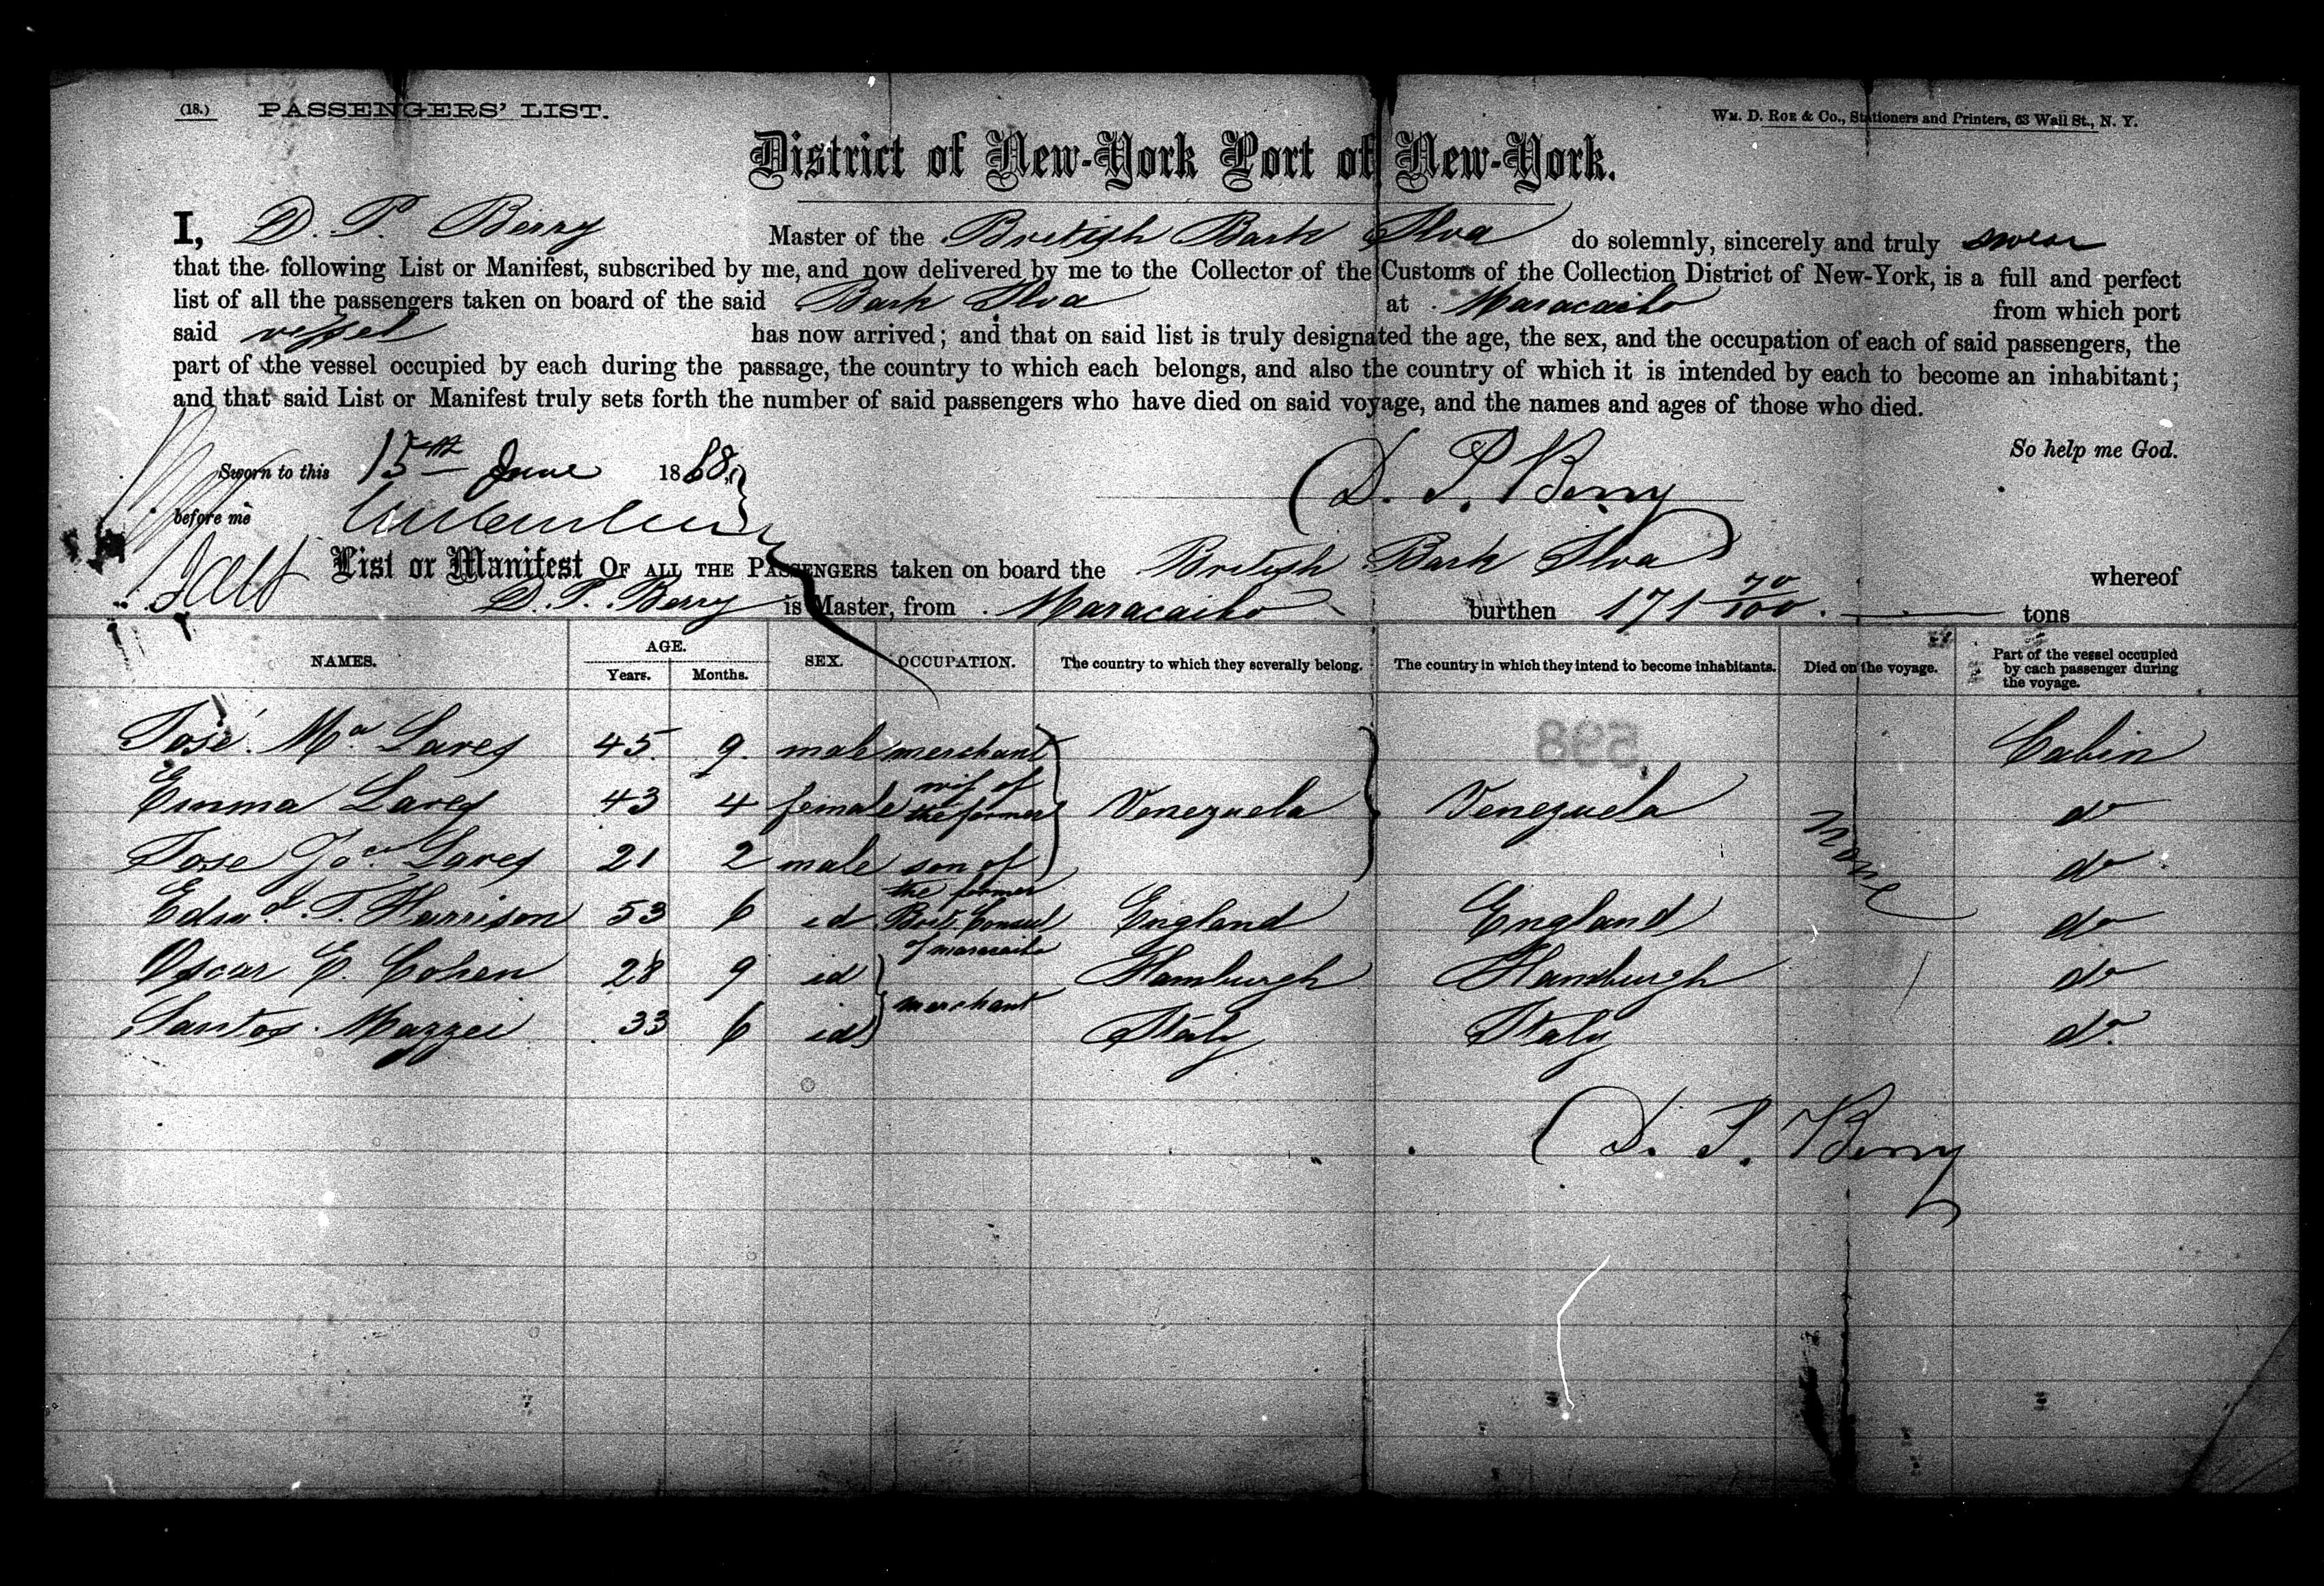 (18.) PASSENGERS' LIST.
Wm. D. Roe & Co., Stationers and Printers, 63 Wall St., N. Y.
District of New-York Port of New-York.
I, D. P. Berry Master of the British Bark Ilva do solemnly, sincerely and truly swear
that the following List or Manifest, subscribed by me, and now delivered by me to the Collector of the Customs of the Collection District of New-York, is a full and perfect
list of all the passengers taken on board of the said Bark Ilva at Maracaibo from which port
said vessel has now arrived; and that on said list is truly designated the age, the sex, and the occupation of each of said passengers, the
part of the vessel occupied by each during the passage, the country to which each belongs, and also the country of which it is intended by each to become an inhabitant;
and that said List or Manifest truly sets forth the number of said passengers who have died on said voyage, and the names and ages of those who died.
So help me God.
Sworn to this 15th June 1868,
D. P. Berry
before me
List or Manifest OF ALL THE PASSENGERS taken on board the British Bark Ilva whereof
D. P. Berry is Master, from Maracaibo burthen 171 70/100 tons
NAMES. AGE. Years. Months. SEX. OCCUPATION. The country to which they severally belong. The country in which they intend to become inhabitants. Died on the voyage. Part of the vessel occupied by each passenger during the voyage.
598
José Ma. Lares 45 9 male merchant Cabin
Emma Lares 43 4 female wif of the former Venezuela Venezuela None do
Jose Joa. Lares 21 2 male son of the former do
Edwd. T. Harrison 53 6 id Brit. Consul of maracaibo England England do
Oscar E. Cohen 28 9 id merchant Hamburgh Hamburgh do
Santos Mazzei 33 6 id Italy Italy do
D. P. Berry